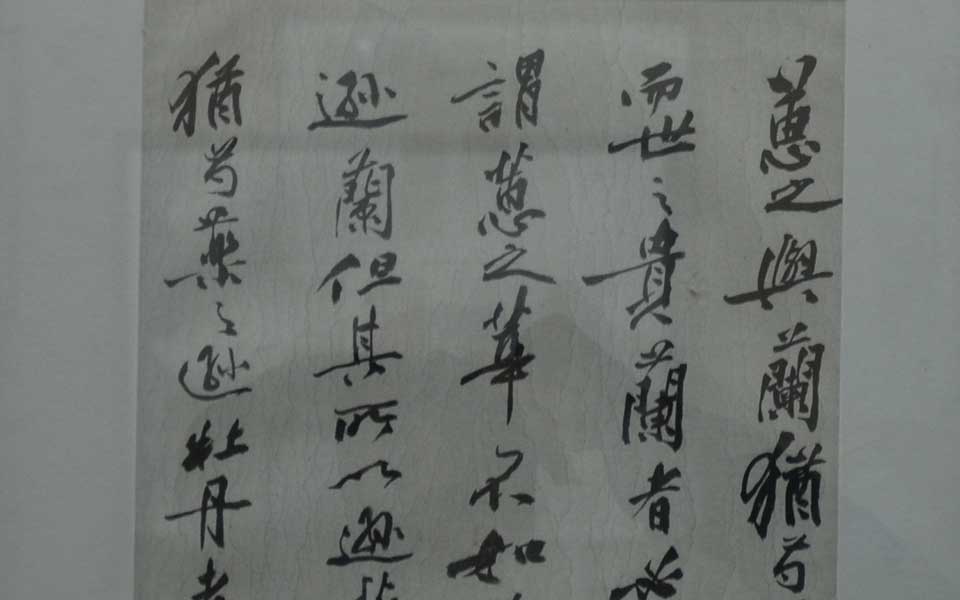 蕙之與蘭猶芍
而世之貴蘭者必
謂蕙之華不如
遜蘭但其所以遜
猶芍藥之遜牡丹者